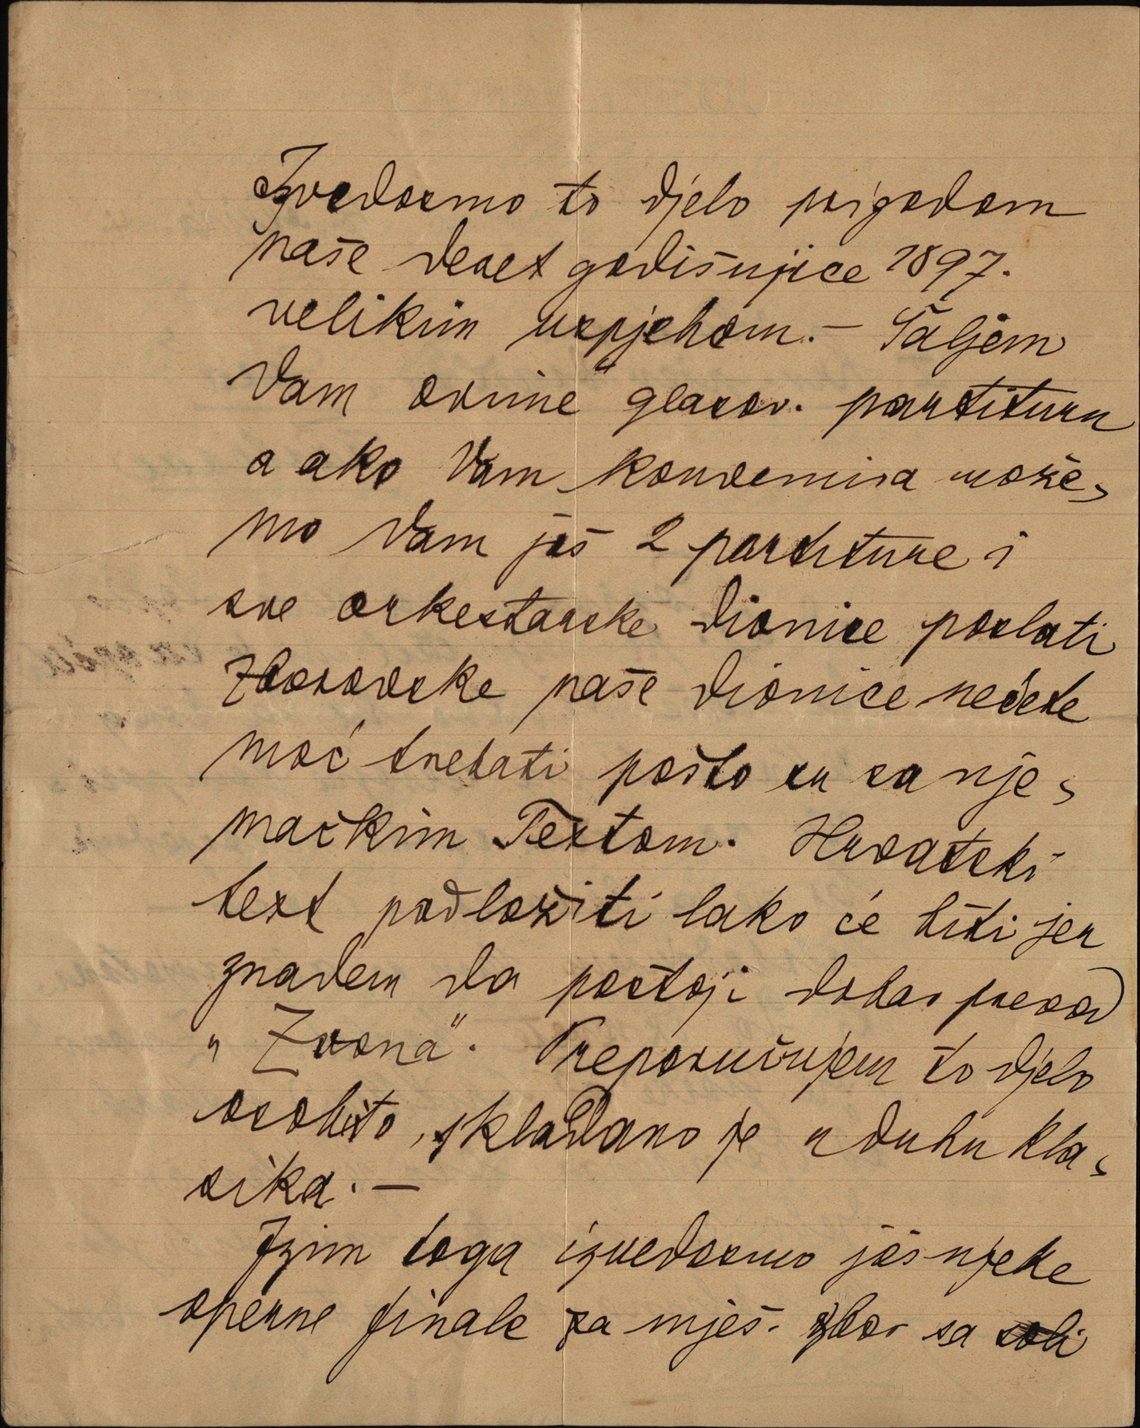 Izvedosmo to djelo prigodom
naše deset godišnjice 1897.
velikim uspjehom. — Šaljem
Vam ovime glasov. partituru
a ako Vam konvenira može-
mo Vam još 2 partiture i
sve orkestarske dionice poslati
Zborovske naše dionice nećete
moć trebati pošto su sa nje-
mačkim Textom. Hrvatski
text podložiti lako će biti jer
znadem da postoji dobar prevod
„Zvona". Preporučujem to djelo
osobito, skladano je u duhu kla-
sika. —
Izim toga izvedosmo još njeke
operne finale za mješ. zbor sa soli